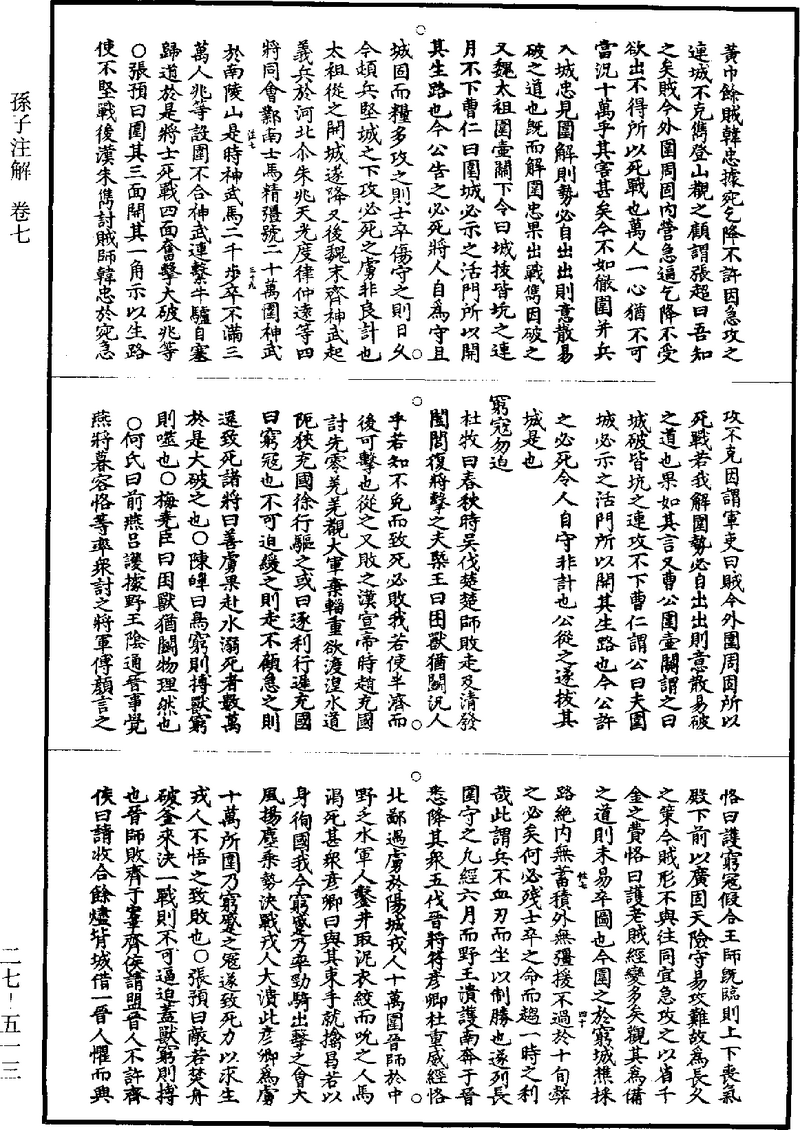 黃巾餘賊韓忠據宛乞降不許因急攻之
連城不克儁登山觀之顧謂張超曰吾知
之矣賊今外圍周固內營急逼乞降不受
欲出不得所以死戰也萬人一心猶不可
當況十萬乎其害甚矣今不如徹圍并兵
入城忠見圍解則勢必自出出則意散易
破之道也既而解圍忠果出戰儁因破之
又魏太祖圍壼關下令曰城拔皆坑之連
月不下曹仁曰圍城必示之活門所以開
其生路也今公告之必死將人自爲守且
城固而糧多攻之則士卒傷守之則日久
今頓兵堅城之下攻必死之虜非良計也
太祖從之開城遂降又後魏末齊神武起
義兵於河北尒朱兆天光度律仲遠等四
將同會鄴南士馬精彊號二十萬圍神武
於南陵山是時神武馬二千步卒不滿三
萬人兆等設圍不合神武連繫牛驢自塞
歸道於是將士死戰四面奮擊大破兆等
○張預曰圍其三面開其一角示以生路
使不堅戰後漢朱儁討賊師韓忠於宛急
攻不克因謂軍吏曰賊今外圍周固所以
死戰若我解圍勢必自出出則意散易破
之道也果如其言又曹公圍壼關謂之曰
城破皆坑之連攻不下曹仁謂公曰夫圍
城必示之活門所以開其生路也今公許
之必死令人自守非計也公從之遂拔其
城是也
窮寇勿迫
杜牧曰春秋時吳伐楚楚師敗走及清發
闔閭復將擊之夫槩王曰困獸猶鬭況人
乎若知不免而致死必敗我若使半濟而
後可擊也從之又敗之漢宣帝時趙充國
討先零羌羌覩大軍棄輜重欲渡湟水道
阨狹充國徐行驅之或曰逐利行遲充國
曰窮寇也不可迫緩之則走不顧急之則
還致死諸將曰善虜果赴水溺死者數萬
於是大破之也○陳皥曰鳥窮則搏獸窮
則噬也○梅堯臣曰困獸猶鬭物理然也
○何氏曰前燕呂護據野王陰通晉事覺
燕將慕容恪等率衆討之將軍傅顏言之
恪曰護窮寇假合王師既臨則上下喪氣
殿下前以廣固天險守易攻難故爲長久
之策今賊形不與往同宜急攻之以省千
金之費恪曰護老賊經變多矣觀其爲備
之道則未易卒圖也今圍之於窮城樵採
路絕內無蓄積外無彊援不過於十旬弊
之必矣何必殘士卒之命而趨一時之利
哉此謂兵不血刃而坐以制勝也遂列長
圍守之凡經六月而野王潰護南奔于晉
悉降其衆五代晉將符彥卿杜重威經恪
北鄙遇虜於陽城戎人十萬圍晉師於中
野乏水軍人鑿井取泥衣絞而吮之人馬
渴死甚衆彥卿曰與其束手就擒曷若以
身徇國我今窮蹙乃率勁騎出擊之會大
風揚塵乘勢決戰戎人大潰此彥卿爲虜
十萬所圍乃窮蹙之寇遂致死力以求生
戎人不悟之致敗也○張預曰敵若焚舟
破釜來決一戰則不可逼迫蓋獸窮則搏
也晉師敗齊于鞌齊侯請盟晉人不許齊
侯曰請收合餘燼背城借一晉人懼而與
孫子注解 卷七
二七－五一三